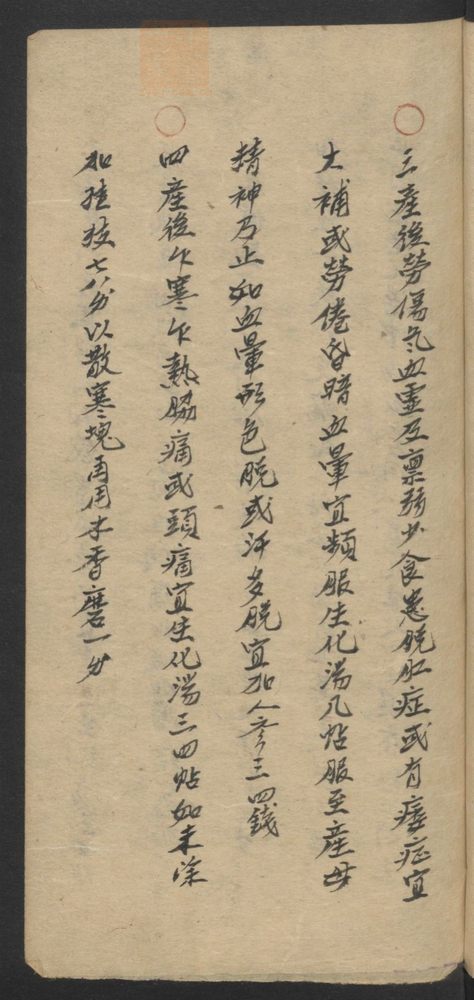 三產後勞傷氣血虛及稟弱少食患脫肛症或有痿症宜
大補或勞倦昏暗血暈宜頻服生化湯几帖服至產母
精神乃止如血暈形色脫或汗多脫宜加人參三四錢
四產後乍寒乍熱脇痛或頭痛宜生化湯三四帖如未除
加桂枝七八分以散寒塊痛用木香磨一分